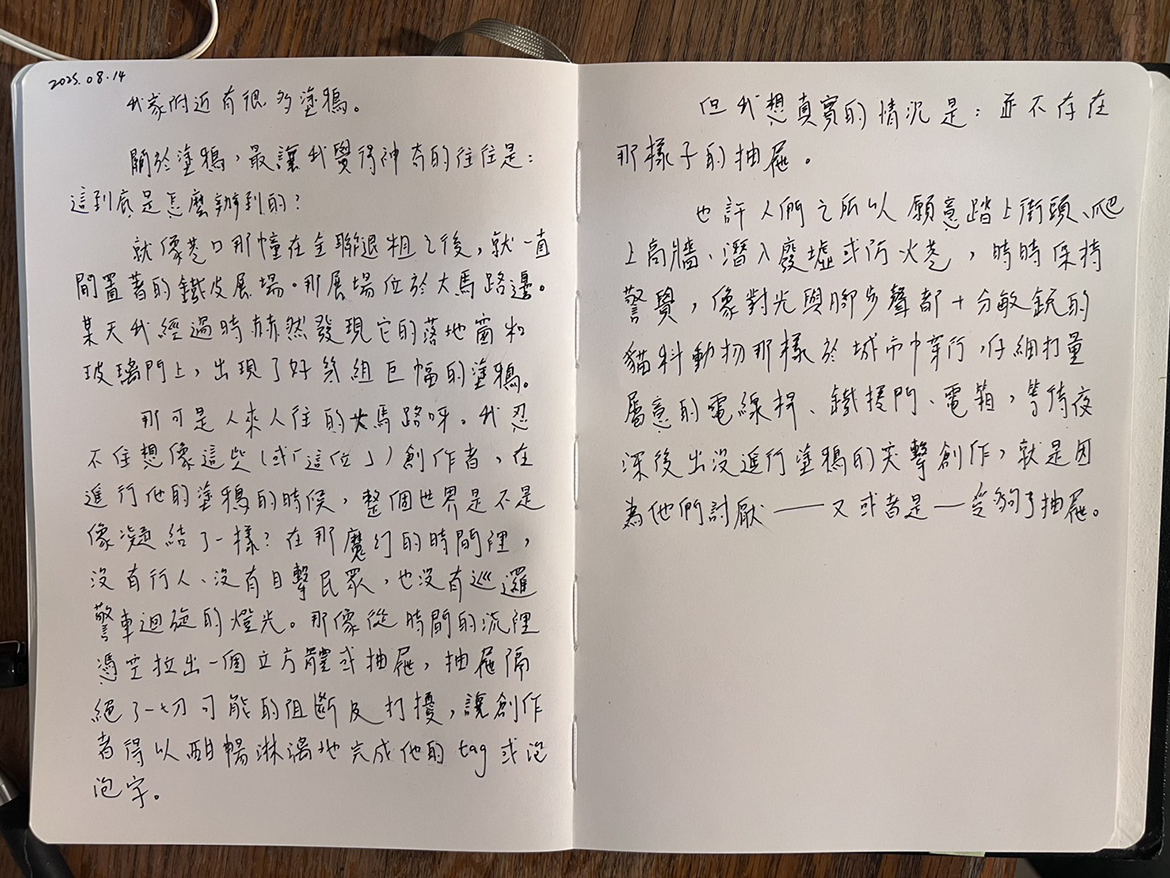 2025.08.14
我家附近有很多塗鴉。
關於塗鴉，最讓我覺得神奇的往往是：
這到底是怎麼辦到的？
就像巷口那幢在全聯退租之後，就一直
閒置著的鐵皮展場。那展場位於大馬路邊。
某天我經過時赫然發現它的落地窗和
玻璃門上，出現了好幾組巨幅的塗鴉。
那可是人來人往的大馬路呀。我忍
不住想像這些（或「這位」）創作者，在
進行他的塗鴉的時候，整個世界是不是
像凝結了一樣？在那魔幻的時間裡，
沒有行人、沒有目擊民眾，也沒有巡邏
警車迴旋的燈光。那像從時間的流裡
憑空拉出一個立方體或抽屜，抽屜隔
絕了一切可能的阻斷及打擾，讓創作
者得以酣暢淋漓地完成他的tag或泡
泡字。
但我想真實的情況是：並不存在
那樣子的抽屜。
也許人們之所以願意踏上街頭、爬
上高牆、潛入廢墟或防火巷，時時保持
警覺，像對光與腳步聲都十分敏銳的
貓科動物那樣於城市中穿行，仔細打量
屬意的電線桿、鐵捲門、電箱，等待夜
深後出沒進行塗鴉的突擊創作，就是因
為他們討厭——又或者是—受夠了抽屜。